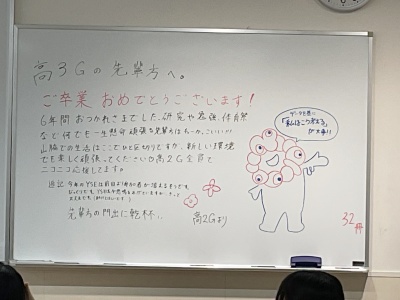 高3Gの先輩方へ。
ご卒業 おめでとうございます!
6年間おつかれさまでした。研究や勉強、体育祭
など何でも一生懸命頑張る先輩方はもーかっこいい!!!
山脇での生活はここでひと区切りですが、新しい環境
でも楽しく頑張ってください♡高2G全員で
ニコニコ応援してます。
追記
先輩方の門出に乾杯。
高2Gより
「私はこう考える」
が大事!!
32冊